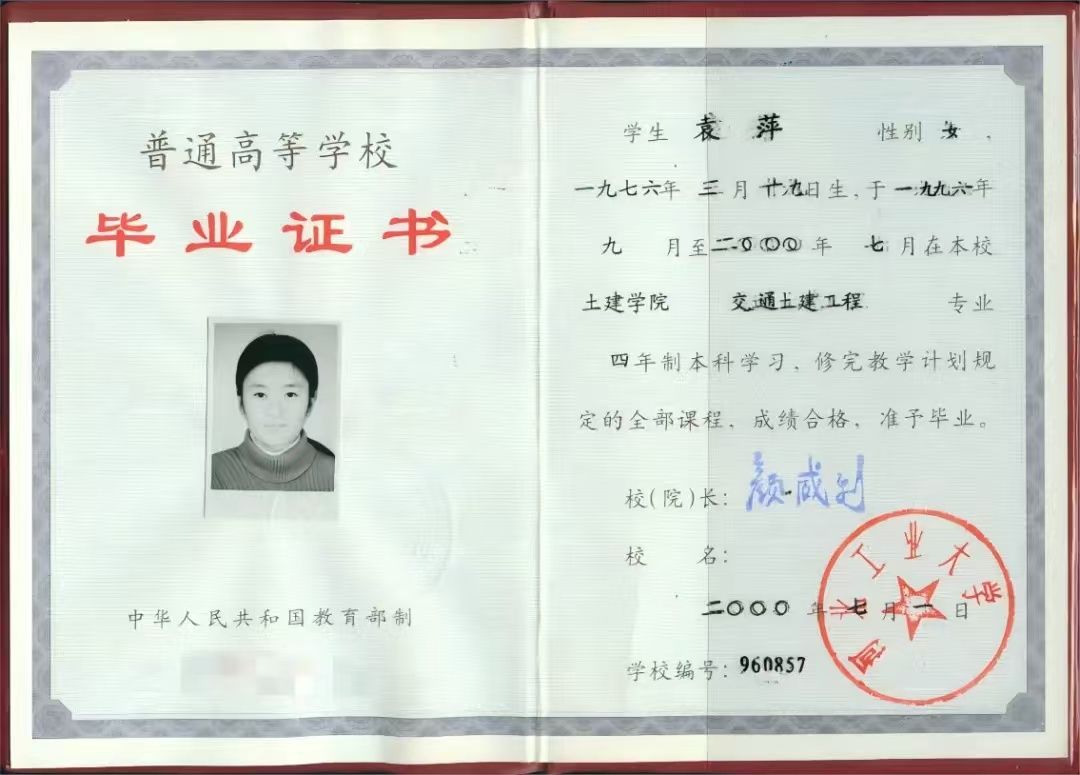 普通高等学校
毕业证书
中华人民共和国教育部制
学生 袁萍 性别 女，
一九七六年 三月 廿九日生，于一九九六年
九 月至二〇〇〇年 七月在本校
土建学院 交通土建工程 专业
四年制本科学习，修完教学计划规
定的全部课程，成绩合格，准予毕业。
校(院)长：
校 名：
河北工业大学
二〇〇〇年七月一日
学校编号：960857